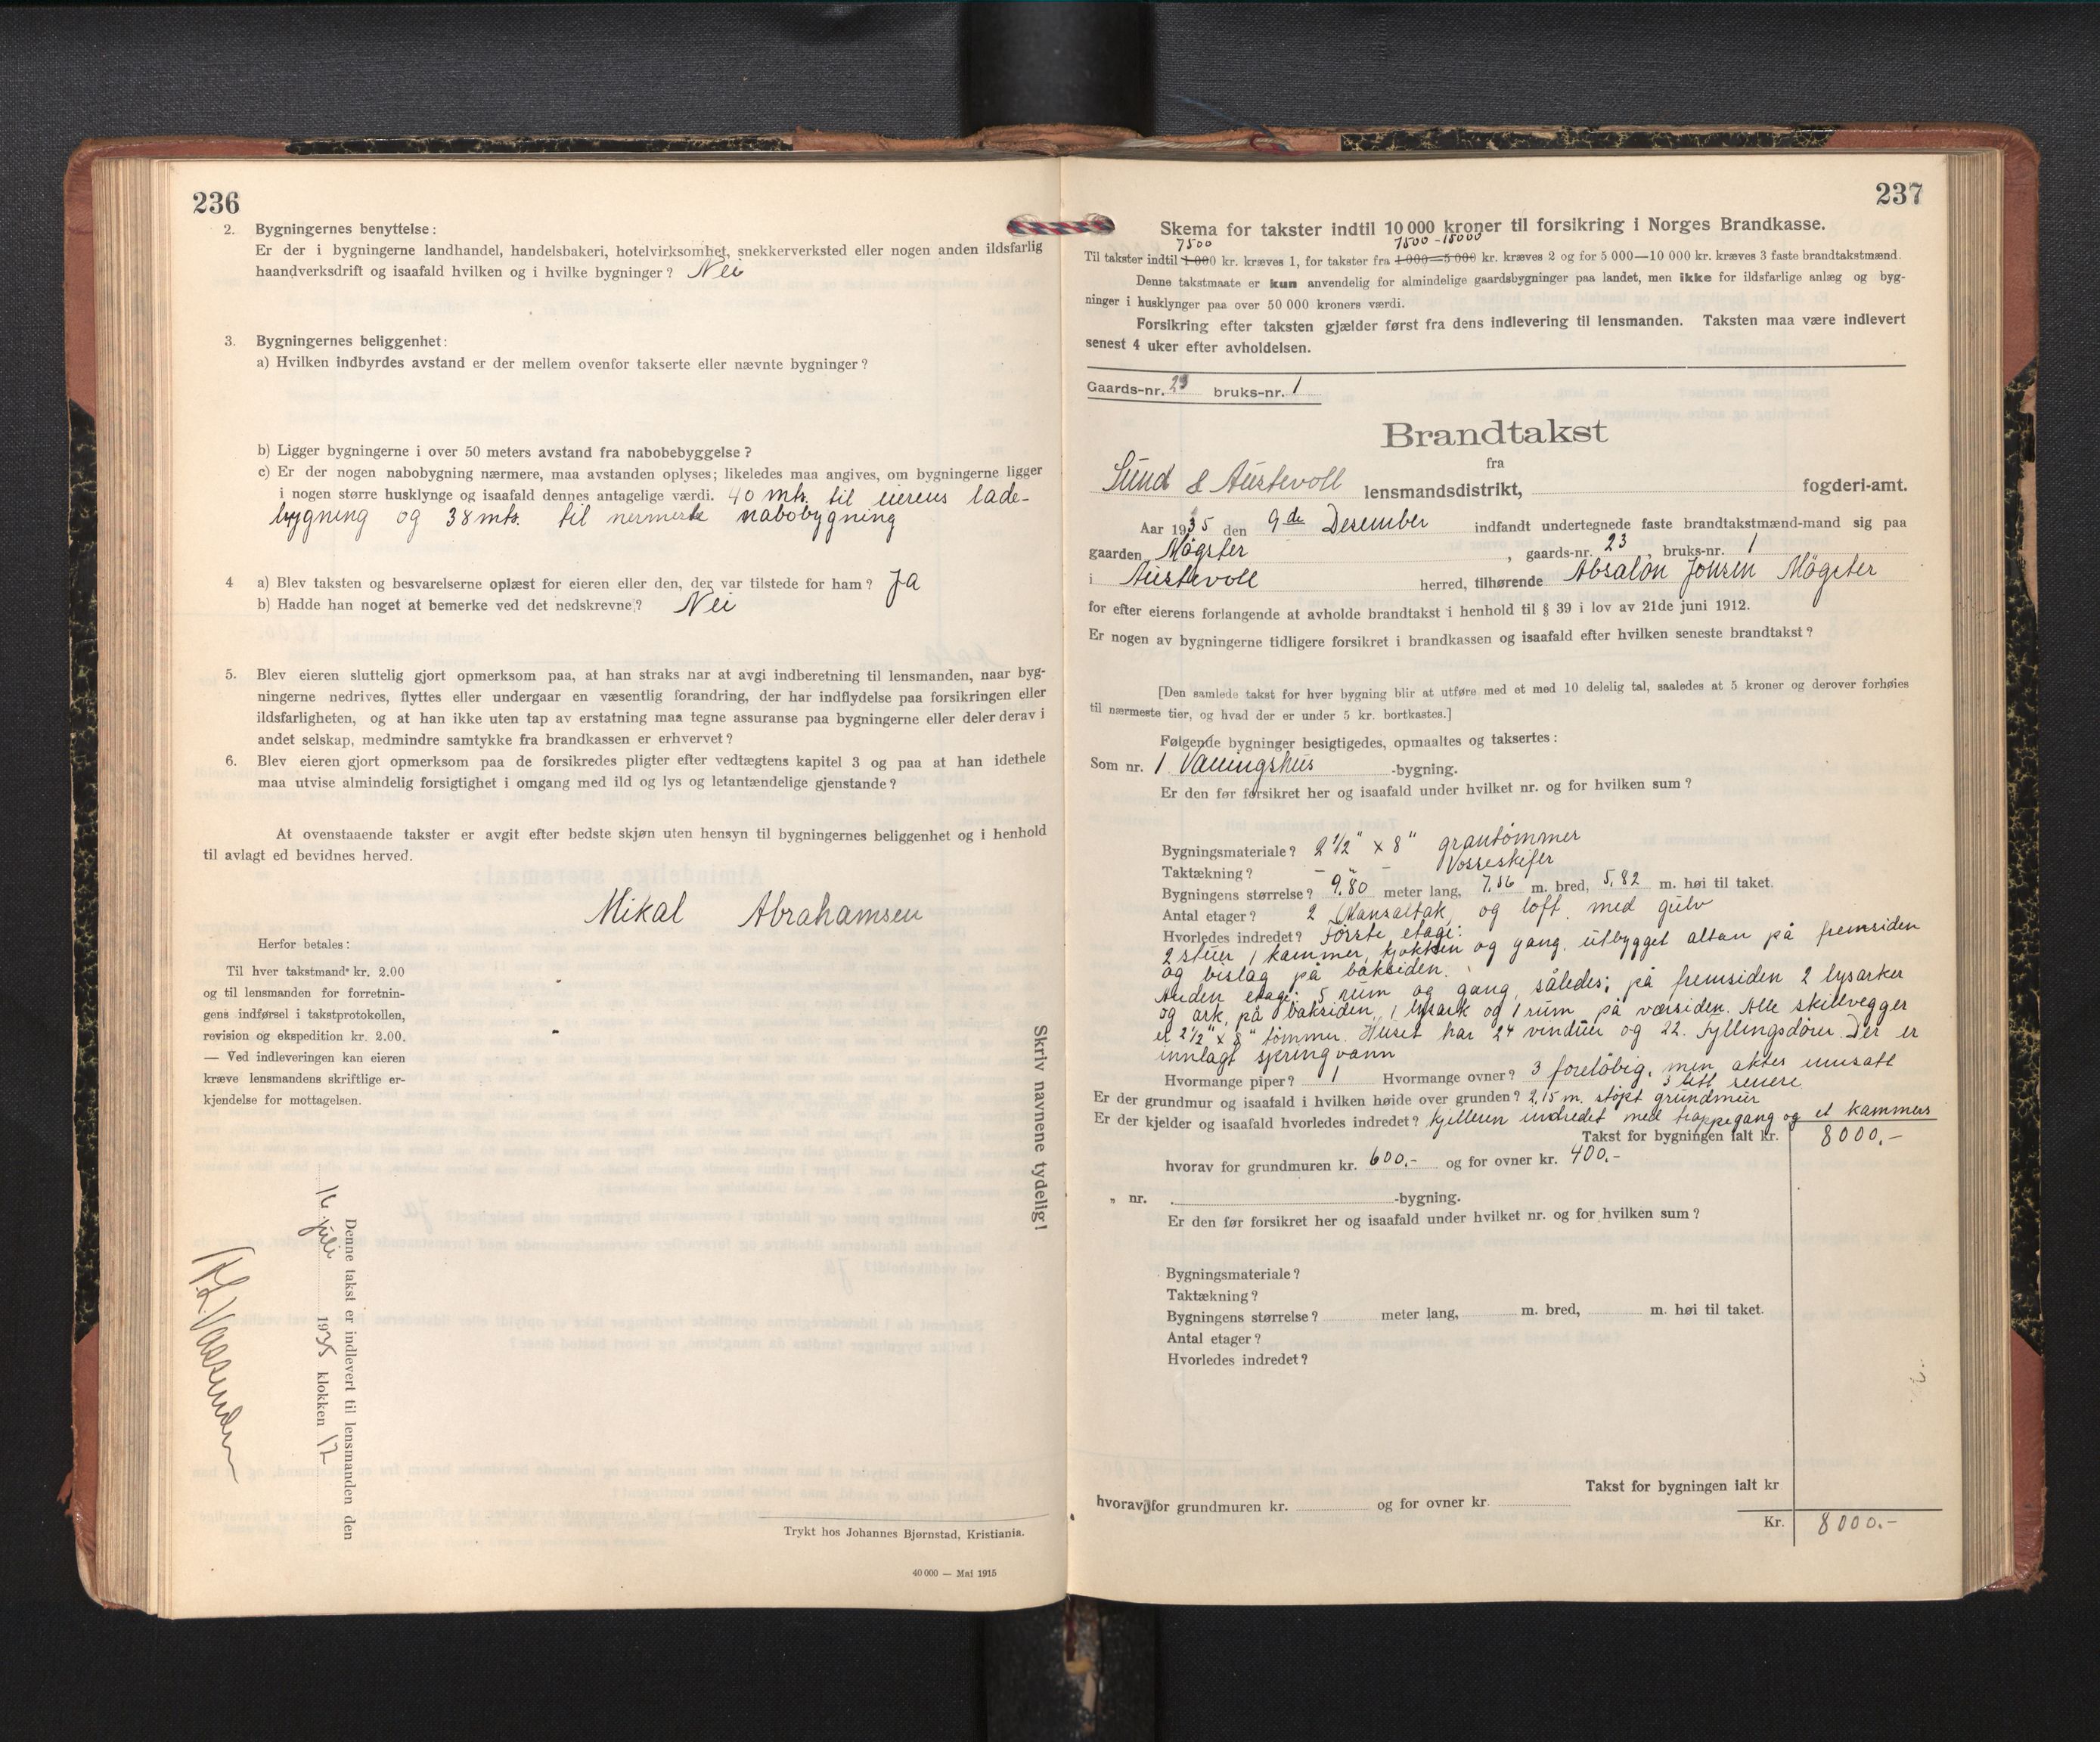 236
2. Bygningernes benyttelse:
Er der i bygningerne landhandel, handelsbakeri, hotelvirksomhet, snekkerverksted eller nogen anden ildsfarlig
haandverksdrift og isaafald hvilken og i hvilke bygninger? Nei
3. Bygningernes beliggenhet:
a) Hvilken indbyrdes avstand er der mellem ovenfor takserte eller nævnte bygninger?
b) Ligger bygningerne i over 50 meters avstand fra nabobebyggelse?
c) Er der nogen nabobygning nærmere, maa avstanden oplyses; likeledes maa angives, om bygningerne ligger
i nogen større husklynge og isaafald dennes antagelige værdi. 40 mts. til eierens lade-
bygning og 38 mts. til nermeste nabobygning
4 a) Blev taksten og besvarelserne oplæst for eieren eller den, der var tilstede for ham? Ja
b) Hadde han noget at bemerke ved det nedskrevne? Nei
5. Blev eieren sluttelig gjort opmerksom paa, at han straks har at avgi indberetning til lensmanden, naar byg-
ningerne nedrives, flyttes eller undergaar en væsentlig forandring, der har indflydelse paa forsikringen eller
ildsfarligheten, og at han ikke uten tap av erstatning maa tegne assuranse paa bygningerne eller deler derav i
andet selskap, medmindre samtykke fra brandkassen er erhvervet?
6. Blev eieren gjort opmerksom paa de forsikredes pligter efter vedtægtens kapitel 3 og paa at han idethele
maa utvise almindelig forsigtighet i omgang med ild og lys og letantændelige gjenstande?
At ovenstaaende takster er avgit efter bedste skjøn uten hensyn til bygningernes beliggenhet og i henhold
til avlagt ed bevidnes herved.
Mikal Abrahamsen
Herfor betales:
Til hver takstmand kr. 2.00
og til lensmanden for forretnin-
gens indførsel i takstprotokollen,
revision og ekspedition kr. 2.00.
— Ved indleveringen kan eieren
kræve lensmandens skriftlige er-
kjendelse for mottagelsen.
Skriv navnene tydelig!
Denne takst er indlevert til lensmanden den
16 juli 1935 klokken 12
Trykt hos Johannes Bjørnstad, Kristiania.
40 000 — Mai 1915
237
Skema for takster indtil 10 000 kroner til forsikring i Norges Brandkasse.
7500 7500-15000
Til takster indtil 1 000 kr. kræves 1, for takster fra 1 000—5 000 kr. kræves 2 og for 5 000—10 000 kr. kræves 3 faste brandtakstmænd.
Denne takstmaate er kun anvendelig for almindelige gaardsbygninger paa landet, men ikke for ildsfarlige anlæg og byg-
ninger i husklynger paa over 50 000 kroners værdi.
Forsikring efter taksten gjælder først fra dens indlevering til lensmanden. Taksten maa være indlevert
senest 4 uker efter avholdelsen.
Gaards-nr. 23 bruks-nr. 1
Brandtakst
fra
Sund & Austevoll lensmandsdistrikt, fogderi-amt.
Aar 1935 den 9de Desember indfandt undertegnede faste brandtakstmænd-mand sig paa
gaarden Møgster, gaards-nr. 23, bruks-nr. 1
i Austevoll herred, tilhørende Absalon Jonsen Møgster
for efter eierens forlangende at avholde brandtakst i henhold til § 39 i lov av 21de juni 1912.
Er nogen av bygningerne tidligere forsikret i brandkassen og isaafald efter hvilken seneste brandtakst?
[Den samlede takst for hver bygning blir at utføre med et med 10 delelig tal, saaledes at 5 kroner og derover forhøies
til nærmeste tier, og hvad der er under 5 kr. bortkastes.]
Følgende bygninger besigtigedes, opmaaltes og taksertes:
Som nr. 1 Vaningshus -bygning.
Er den før forsikret her og isaafald under hvilket nr. og for hvilken sum?
Bygningsmateriale? 2 1/2" x 8" grantømmer
Taktækning? Vosseskifer
Bygningens størrelse? 9,80 meter lang, 7,56 m. bred, 5,82 m. høi til taket.
Antal etager? 2 Mansaltak og loft med gulv
Hvorledes indredet? Første etage:
2 stuer 1 kammer, kjøkken og gang. utbygget altan på fremsiden
og bislag på baksiden.
Anden etage: 5 rum og gang, således; på fremsiden 2 lysarker
og ark, på baksiden, 1 lysark og 1 rum på værsiden. Alle skillvegger
er 2 1/2" x 8" tømmer. Huset har 24 vinduer og 22. fyllingsdører. Der er
innlagt springvann
Hvormange piper? 1 Hvormange ovner? 3 foreløbig, men aktes innsatt
3 sett senere
Er der grundmur og isaafald i hvilken høide over grunden? 2,15 m. støpt grundmur
Er der kjelder og isaafald hvorledes indredet? Kjelleren indredet med trappegang og et kammers
Takst for bygningen ialt kr. 8000.-
hvorav for grundmuren kr. 600.- og for ovner kr. 400.-
„ nr. -bygning.
Er den før forsikret her og isaafald under hvilket nr. og for hvilken sum?
Bygningsmateriale?
Taktækning?
Bygningens størrelse? meter lang, m. bred, m. høi til taket.
Antal etager?
Hvorledes indredet?
Takst for bygningen ialt kr
hvorav for grundmuren kr. og for ovner kr.
Kr. 8000.-